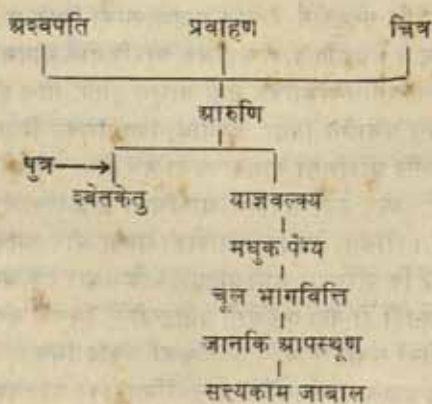 अश्वपति प्रवाहण चित्र
आरुणि
पुत्र→
श्वेतकेतु याज्ञवल्क्य
मधुक पैंग्य
चूल भागवित्ति
जानकि आपस्थूण
सत्यकाम जाबाल